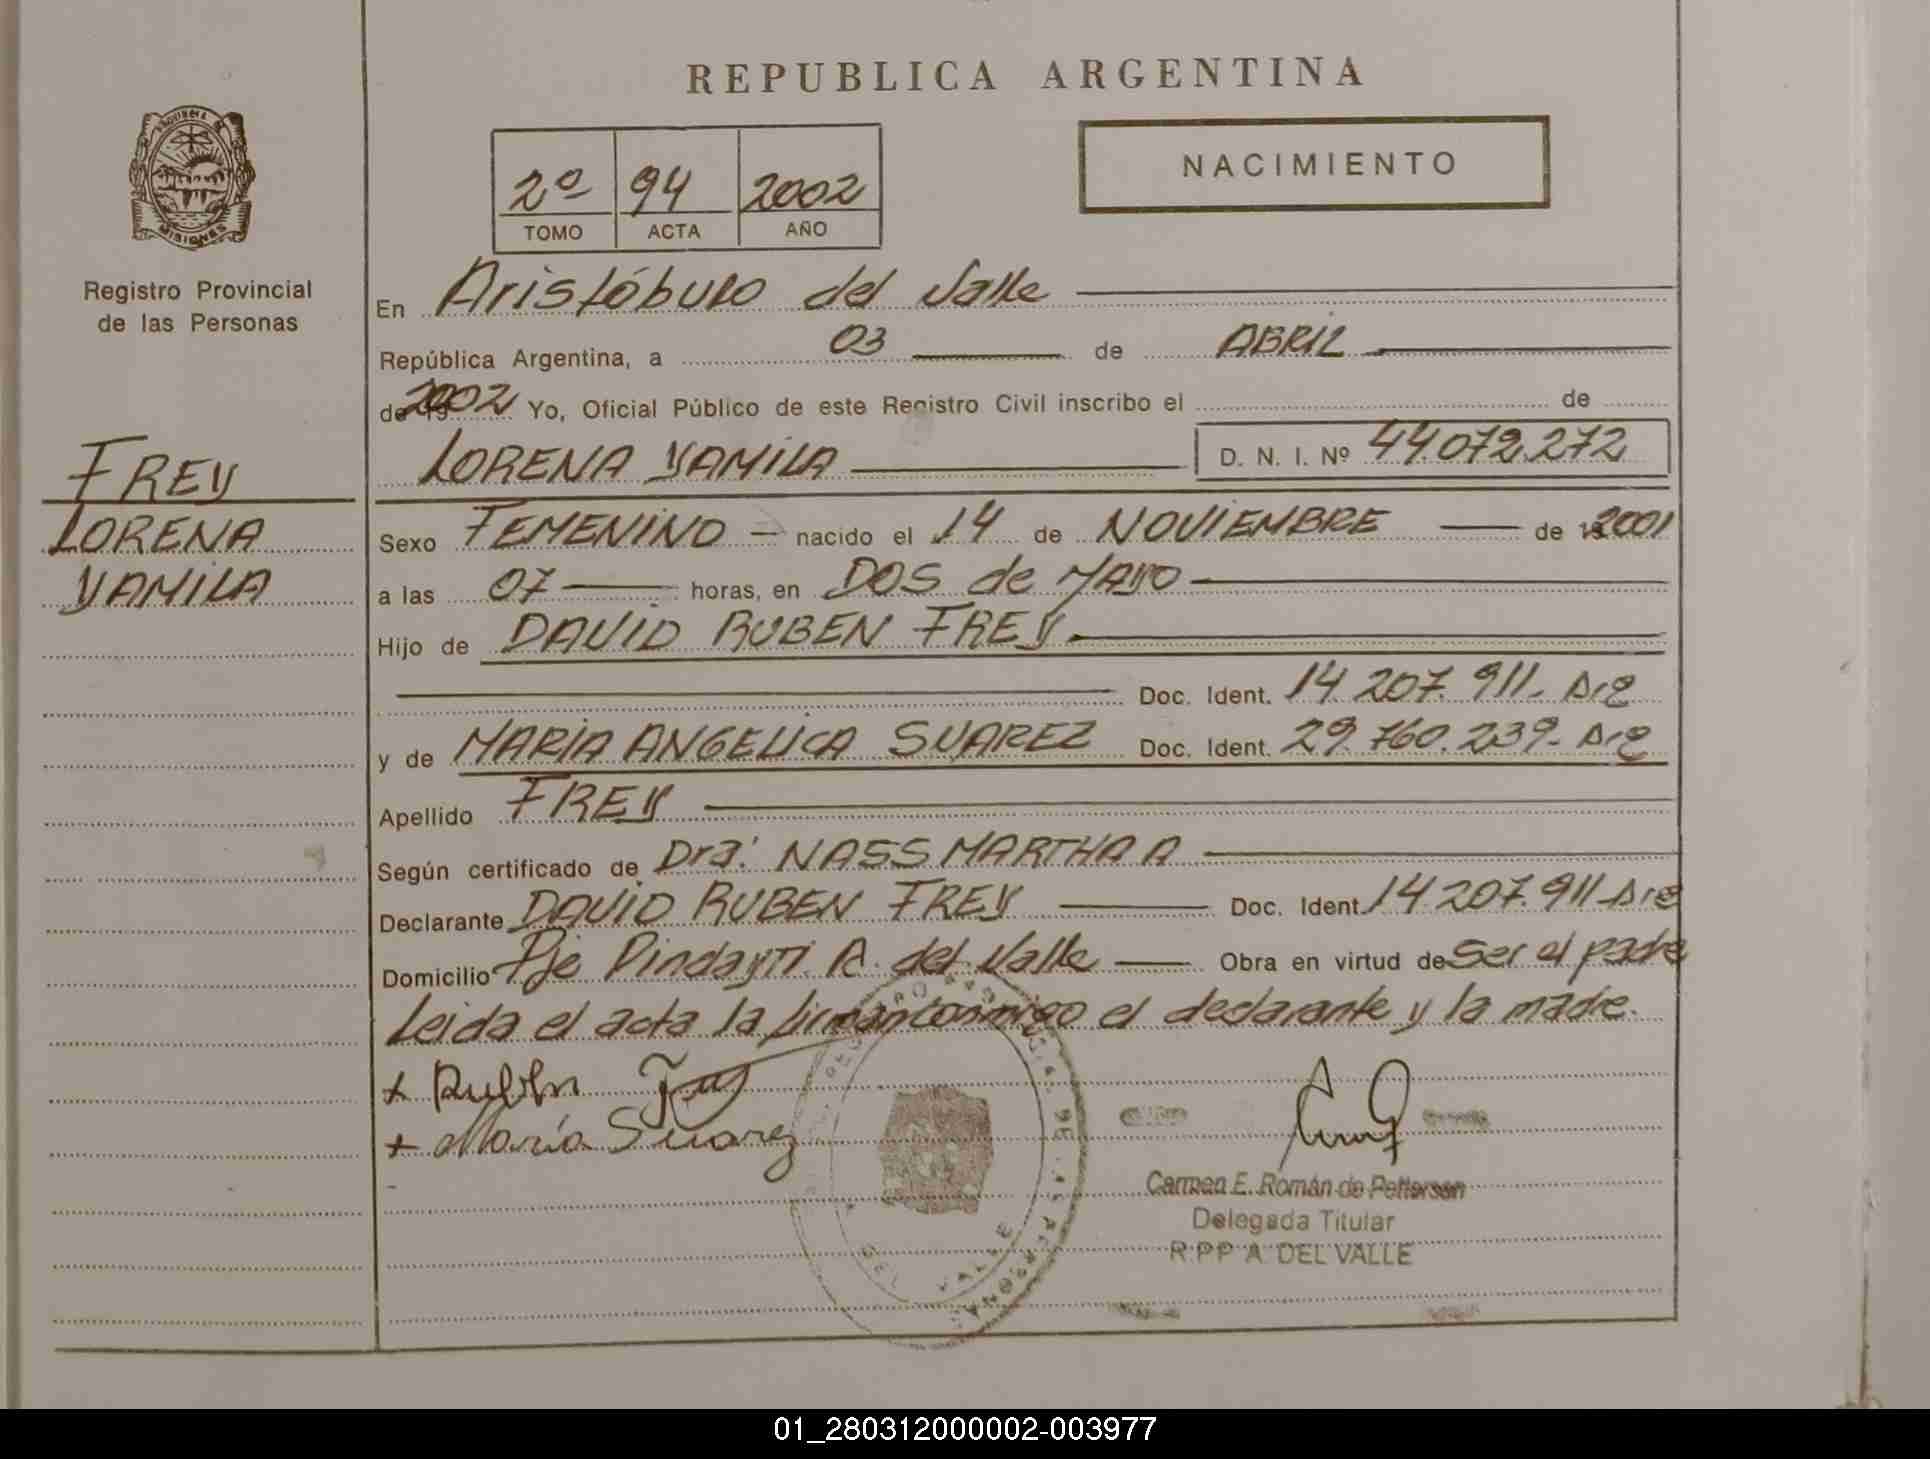 REPUBLICA ARGENTINA
NACIMIENTO
2º 94 2002
TOMO ACTA AÑO
MISIONES
Registro Provincial
de las Personas
En Aristóbulo del Valle
República Argentina, a 03 de ABRIL
de 2002 Yo, Oficial Público de este Registro Civil inscribo el de
LORENA YAMILA D. N. I. Nº 44.072.272
FREY
LORENA
YAMILA
Sexo FEMENINO nacido el 14 de NOVIEMBRE de 2001
a las 07 horas, en DOS de MAYO
Hijo de DAVID RUBEN FREY
Doc. Ident. 14.207.911- Arg
y de MARIA ANGELICA SUAREZ Doc. Ident. 29.760.239- Arg
Apellido FREY
Según certificado de Dra: NASS MARTHA A
Declarante DAVID RUBEN FREY Doc. Ident. 14.207.911 Arg
Domicilio Pje Pindayti A. del Valle Obra en virtud de Ser el padre
Leida el acta la firman conmigo el declarante y la madre.
+ Rubén Frey
+ María Suarez
DEL VALLE
Carmen E. Román de Pettersen
Delegada Titular
R.P.P A. DEL VALLE
01_280312000002-003977